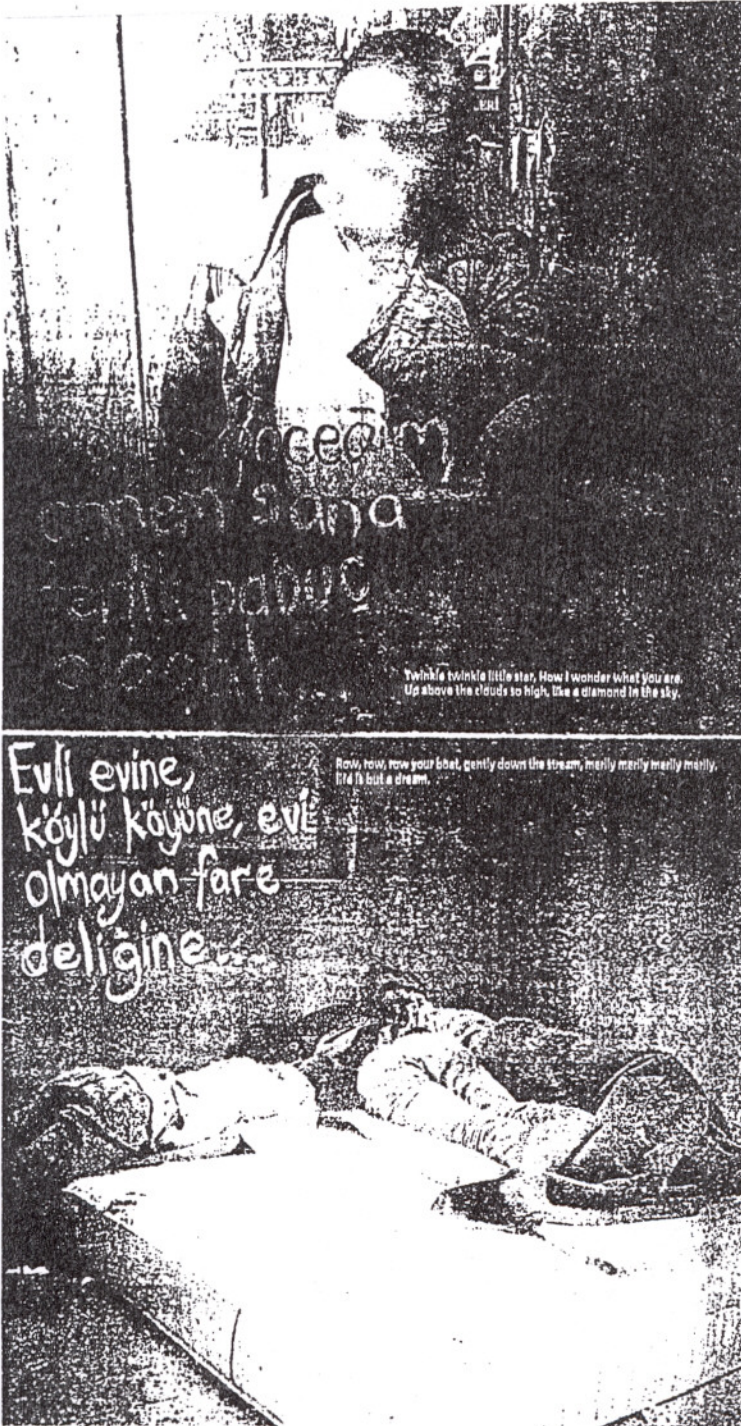 annem sana
pabuç
Twinkle twinkle little star, How I wonder what you are.
Up above the clouds so high, like a diamond in the sky.
Evli evine,
köylü köyüne, evi
olmayan fare
deliğine...
Row, row, row your boat, gently down the stream, merily merily merily merily,
life is but a dream.